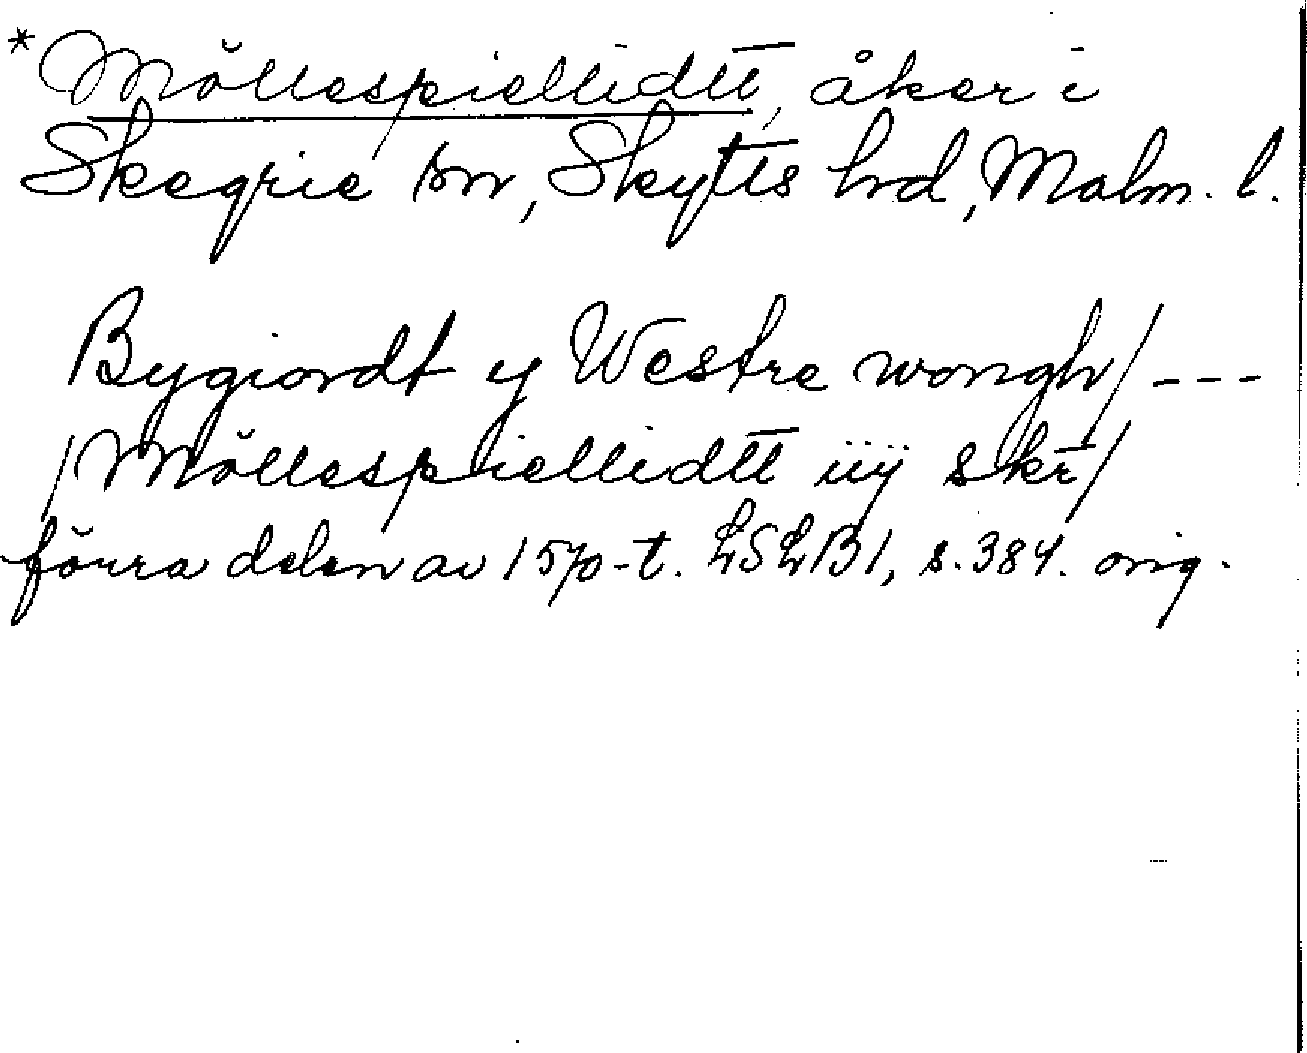 *Möllespiellidtt, åker i
Skegrie sn, Skytts hd, Malm. l.
Bygiordt y Westre wongh/ ---
/Möllespiellidtt iiij skr/
förra delen av 1570-t. LSLB1, s. 384. orig.